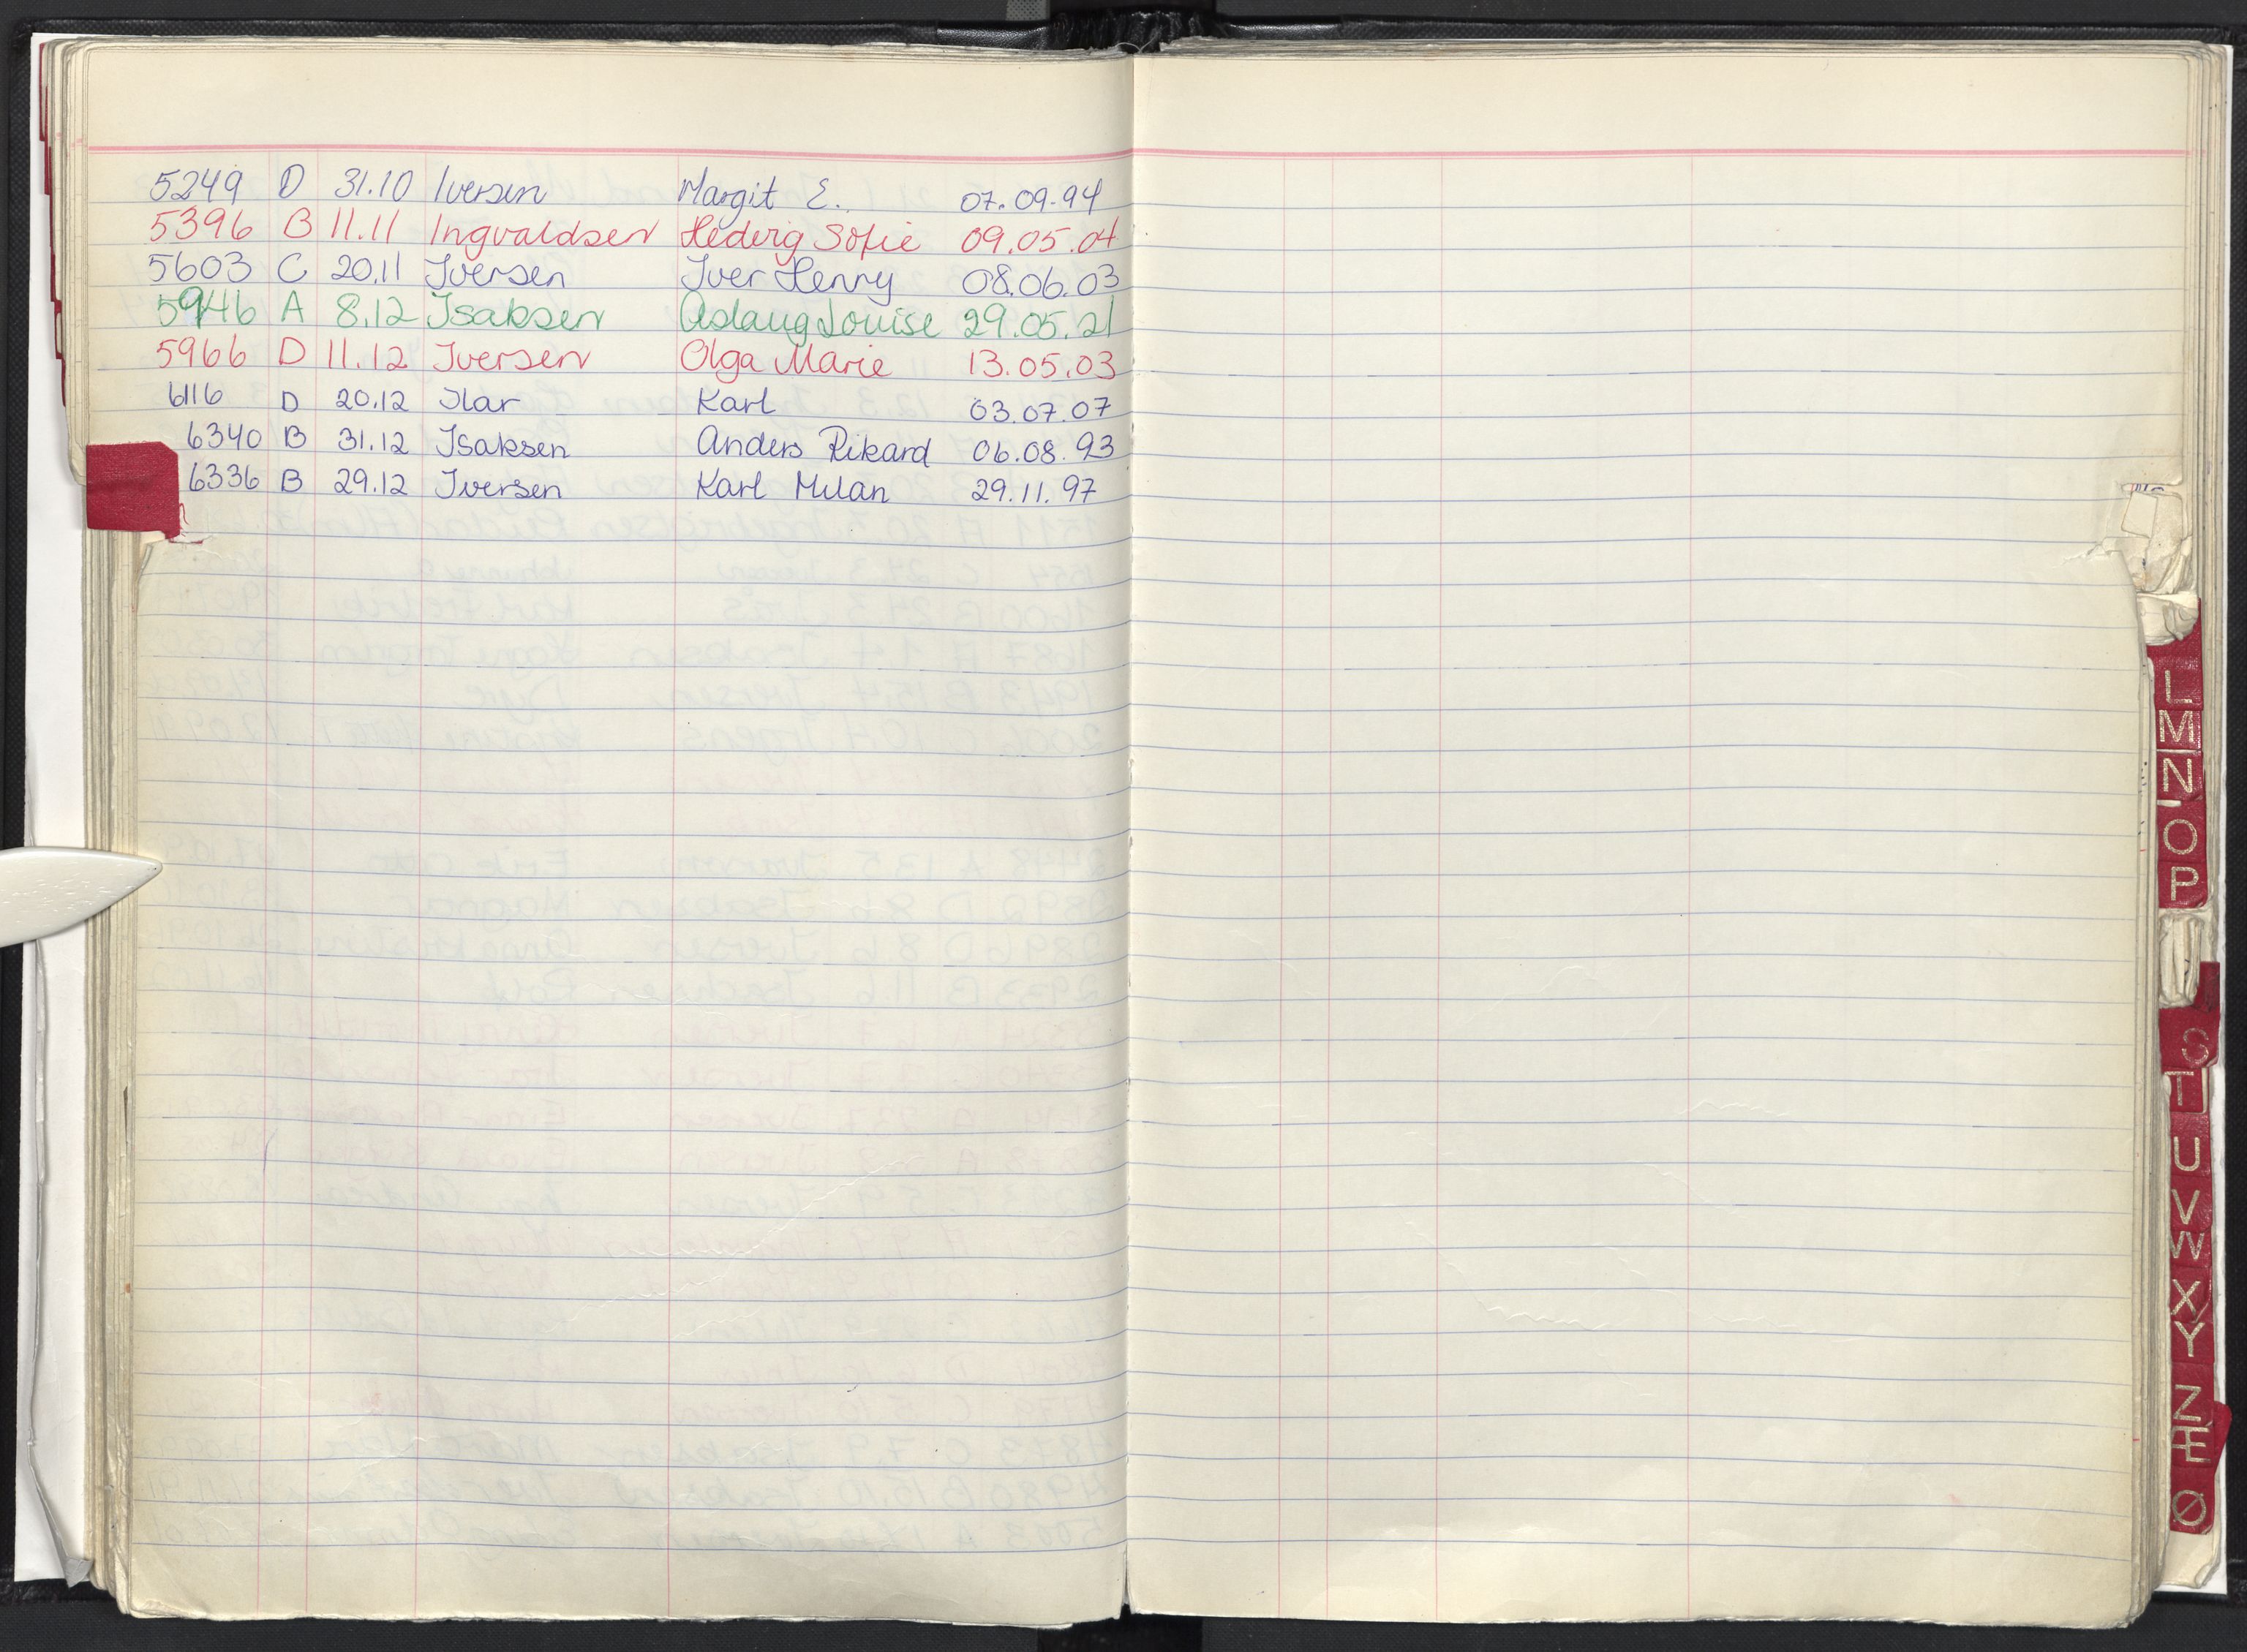 5249 D 31.10 Iversen Margit E. 07.09.94
5396 B 11.11 Ingvaldsen Hedvig Sofie 09.05.04
5603 C 20.11 Iversen Iver Henry 08.06.03
5946 A 8.12 Isaksen Aslaug Louise 29.05.21
5966 D 11.12 Iversen Olga Marie 13.05.03
6116 D 20.12 Ilar Karl 03.07.07
6340 B 31.12 Isaksen Anders Rikard 06.08.93
6336 B 29.12 Iversen Karl Milan 29.11.97
L
M
N
O
P
S
T
U
V
W
X
Y
Z
Æ
Ø